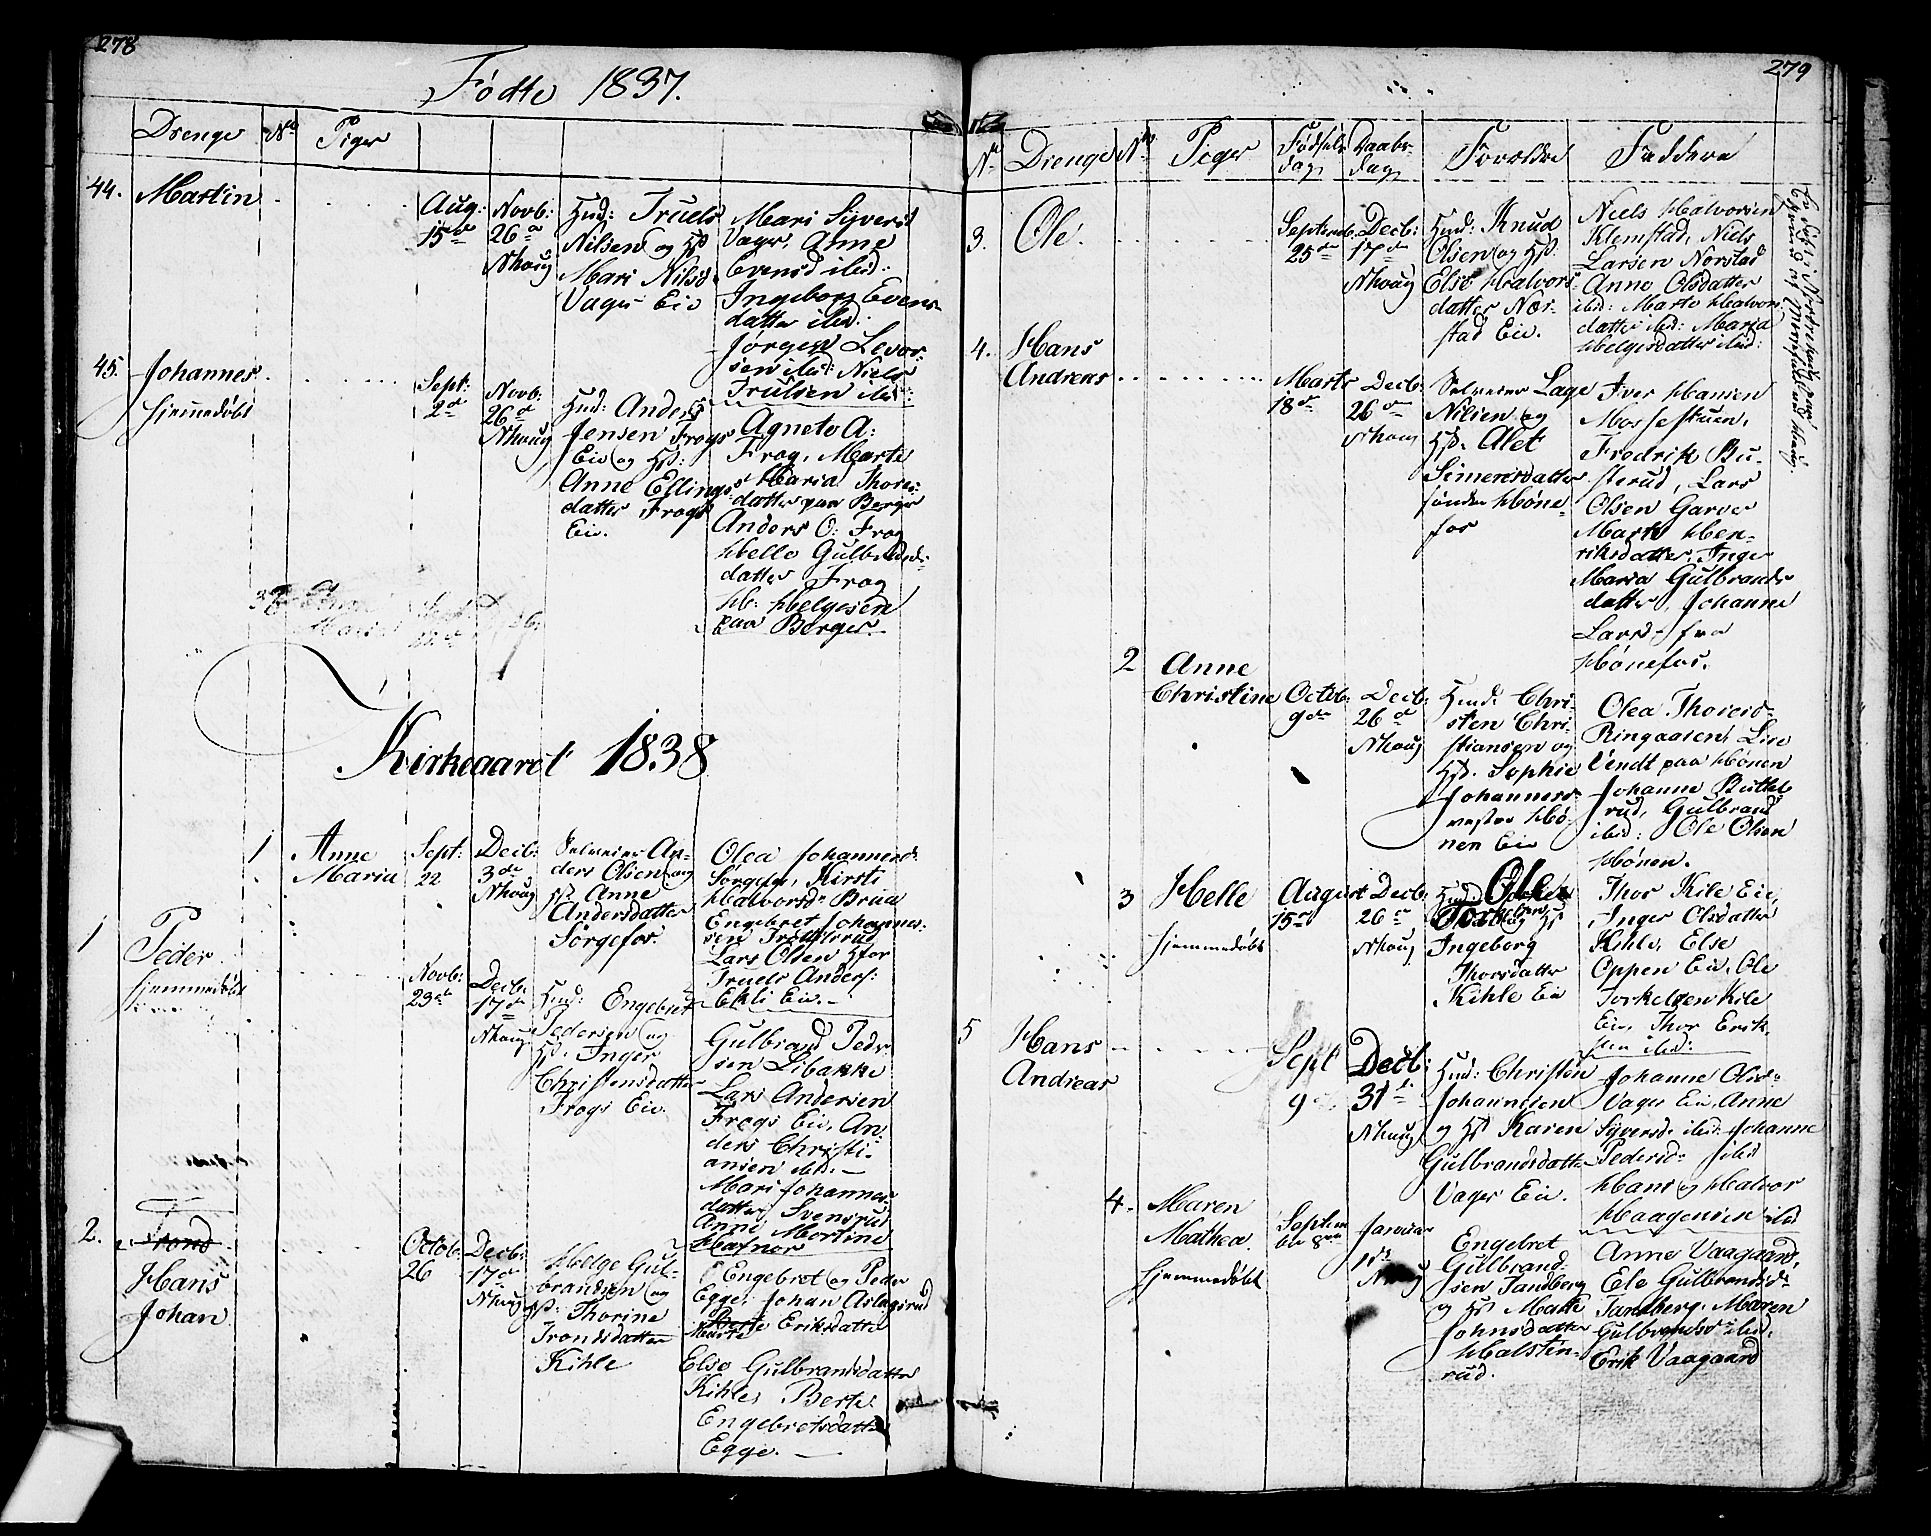 278
Fødte 1837.
Drenge No Piger
44. Martin
Aug: 15de
Novb: 26de Nhoug
Huus: Truels
Nilsen og Hst
Mari Nilsd:
Vager Eie
Mari Syversd
Vager, Anne
Evensd ibid:
Ingeborg Evens-
datter ibid:
Jørgen Levor-
sen ibid: Niels
Trulsen ibid:
45. Johannes
hjemmedøbt
Sept: 2de
Novb: 26de Nhoug
Huus: Anders
Jensen Frogs
Eie og Hst:
Anne Ellings-
datter Frogs
Eie.
Agnete A:
Frog, Marte
Maria Thores-
datter paa Berger
Anders O: Frog
Helle Gulbrands-
datter Frog
H: Helgesen
paa Berger.
Kirkeaaret 1838
1 Anne
Maria
Sept: 22
Decb: 3de Nhoug
Selveier An-
ders Olsen og
Hst Anne
Andersdatter
Sørgefos.
Olea Johannesd:
Sørgefos, Kirsti
Halvorsd: Brua
Engebret Johannes-
sen Trøgslrud
Lars Olsen Hfos
Truels Anders:
Ekli Eie.
1 Peder
hjemmedøbt
Novb: 23de
Decb: 17de Nhoug
Huus: Engebret
Pedersen og
Hst. Inger
Christensdatter
Frogs Eie.
Gulbrand Peder-
sen Libakke
Lars Andersen
Frogs Eie, An-
ders Christi-
ansen ibid.
Mari Johannes-
datter Svensrud
Anne Mortine
Hafnor
2. Trond
Hans
Johan
Octob: 26
Decb: 17de Nhoug
Helge Gul-
brandsen og
Hst: Thorine
Trondsdatter
Kihle
Engebret og Peder
Egge, Johan Aslagsrud
Marte Eriksdatter
Else Gulbrandsdatter
Kihle, Berte
Engebretsdatter
Egge.
279
No Drenge No Piger Fødsels dag Daabs- dag Forældre Faddere
3. Ole.
Septemb. 25de
Decb: 17de Nhoug
Huus: Knud
Olsen og Hst:
Else Halvors-
datter Nor-
stad Eie.
Niels Halvorsen
Klemstad, Niels
Larsen Norstad
Anne Olsdatter
ibid: Marte Halvors-
datter ibid: Maria
Helgesdatter ibid:
4. Hans
Andreas
Marts 18de
Decb: 26de Nhoug
Selveier Lage
Nilsen og
Hst. Alet
Simensdatter
sønden Høne-
fos
Iver Hansen
Mossestuen,
Fredrik Bu-
sterud, Lars
Olsen Garver
Marte Hen-
riksdatter, Inger
Maria Gulbrands-
datter, Johanne
Larsd: fra
Hønefos.
2 Anne
Christine
Octob: 9de
Decb: 26de Nhoug
Huus: Chri-
sten Chri-
stiansen og
Hst. Sophie
Johannesd:
vester Hø-
nen Eie
Olea Thoresd-
Ringaasen, Lise
Vendt paa Hønen
Johanne Buttel-
rud, Gulbrand
ibid: Ole Olsen
Hønen.
3 Helle
hjemmedøbt
August 15de
Decb: 26de Nhoug
Huus: Ole
Tor og Hst
Ingeborg
Thorsdatter
Kihle Eie
Thor Kile Eie,
Inger Olsdatter
Kihle, Else
Oppen Eie, Ole
Torkelsen Kile
Eie, Thor Erik-
sen ibid:
5 Hans
Andreas
Sept 9de
Decb: 31te Nhoug
Huus: Christen
Johannesen
og Hst Karen
Gulbrandsdatter
Vager Eie.
Johanne Olsd-
Vager Eie, Anne
Syversd: ibid: Johanne
Pedersd: ibid
Hans og Halvor
Haagensen ibid
4. Maren
Mathea.
hjemmedøbt
Septem ber 8de
Januar 1ste Nhoug
Engebret
Gulbrand-
sen Tandberg
og Hst Mathe
Johnsdatter
Halstin-
rud.
Anne Vaagaard,
Ele Gulbrandsd:
Tandberg, Maren
Gulbrandsd ibid,
Erik Vaagaard